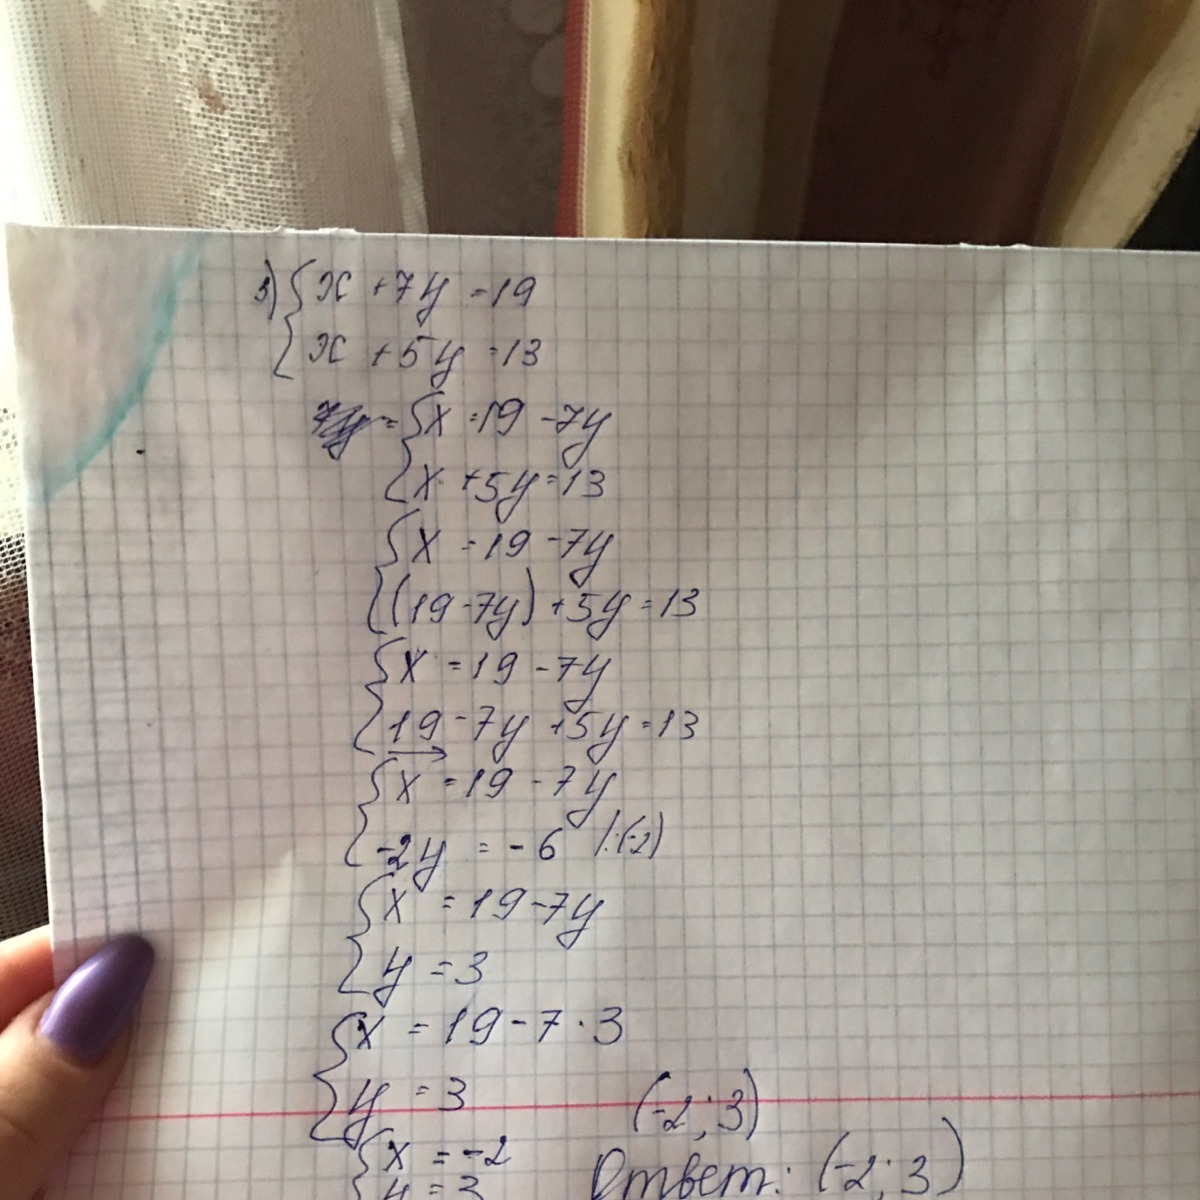 3) { x + 7y = 19
{ x + 5y = 13
{ x = 19 - 7y
{ x + 5y = 13
{ x = 19 - 7y
{ (19 - 7y) + 5y = 13
{ x = 19 - 7y
{ 19 - 7y + 5y = 13
{ x = 19 - 7y
{ -2y = -6 | :(-2)
{ x = 19 - 7y
{ y = 3
{ x = 19 - 7 · 3
{ y = 3
(-2; 3)
{ x = -2
{ y = 3
Ответ: (-2; 3)